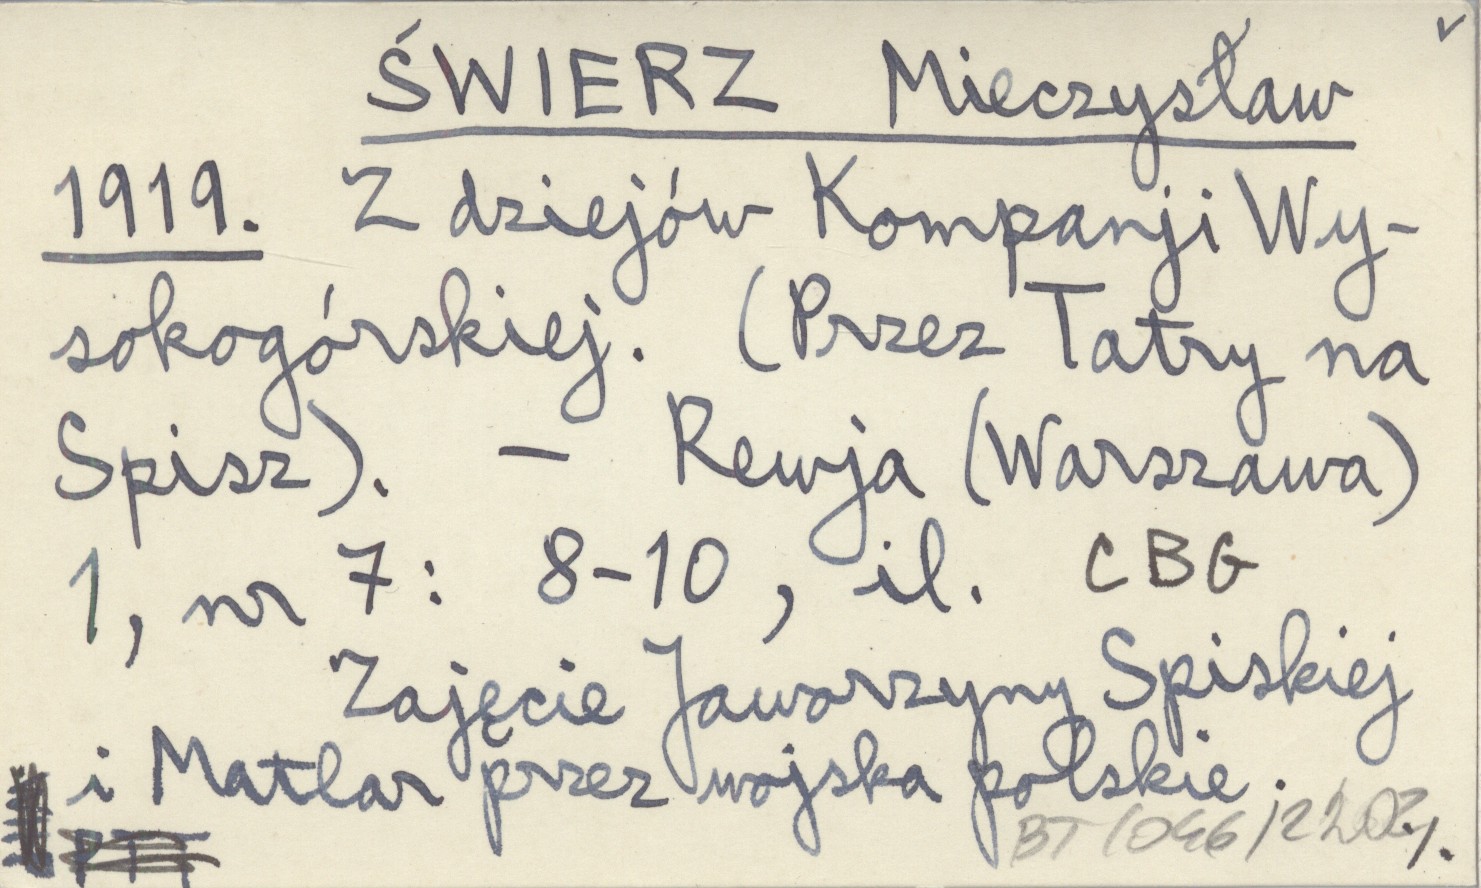 ŚWIERZ Mieczysław
1919. Z dziejów Kompanji Wy-
sokogórskiej. (Przez Tatry na
Spisz). — Rewja (Warszawa)
1, nr 7: 8-10, il. CBG
Zajęcie Jaworzyny Spiskiej
i Matlar przez wojska polskie.
PTT BT (046)